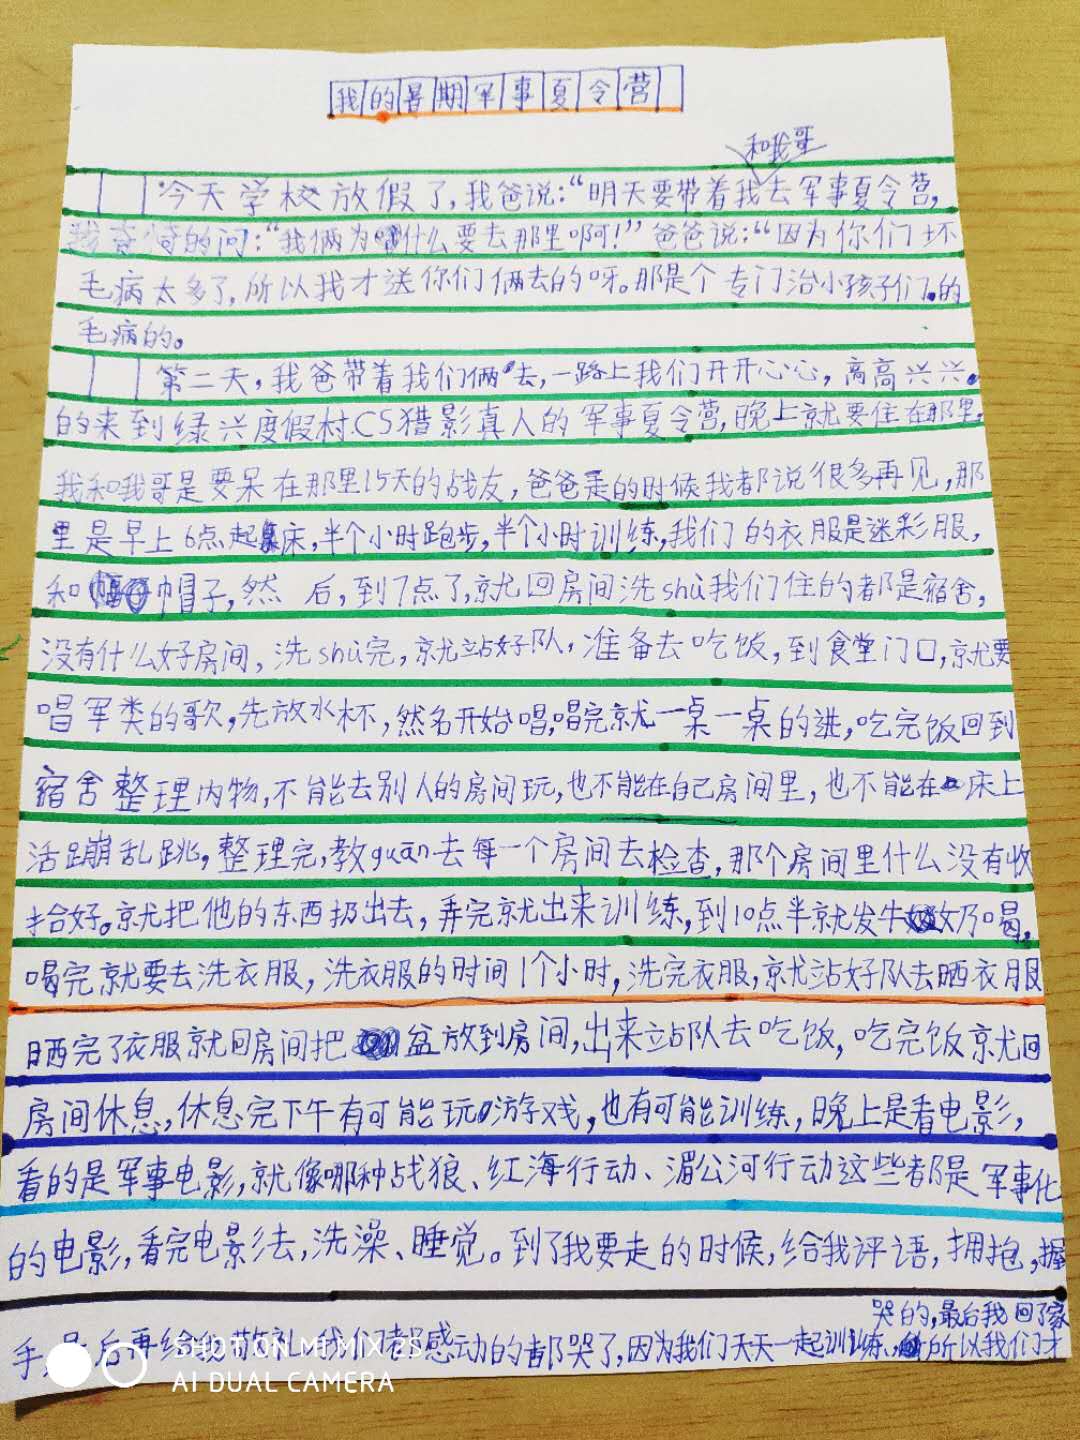 我的暑期军事夏令营
和我哥
今天学校放假了,我爸说:“明天要带着我去军事夏令营,
我奇怪的问:“我俩为什么要去那里啊!”爸爸说:“因为你们坏
毛病太多了,所以我才送你们俩去的呀。那是个专门治小孩子们的
毛病的。
第二天,我爸带着我们俩去,一路上我们开开心心,高高兴兴
的来到绿兴度假村CS猎影真人的军事夏令营,晚上就要住在那里。
我和我哥是要呆在那里15天的战友,爸爸走的时候我都说很多再见,那
里是早上6点起床,半个小时跑步,半个小时训练,我们的衣服是迷彩服,
和帽子,然后,到7点了,就回房间洗shù我们住的都是宿舍,
没有什么好房间,洗shù完,就站好队,准备去吃饭,到食堂门口,就要
唱军类的歌,先放水杯,然名开始唱,唱完就一桌一桌的进,吃完饭回到
宿舍整理内物,不能去别人的房间玩,也不能在自己房间里,也不能在床上
活蹦乱跳,整理完,教guān去每一个房间去检查,那个房间里什么没有收
拾好。就把他的东西扔出去,弄完就出来训练,到10点半就发牛奶喝,
喝完就要去洗衣服,洗衣服的时间1个小时,洗完衣服,就站好队去晒衣服
晒完了衣服就回房间把盆放到房间,出来站队去吃饭,吃完饭就回
房间休息,休息完下午有可能玩游戏,也有可能训练,晚上是看电影,
看的是军事电影,就像哪种战狼、红海行动、湄公河行动这些都是军事化
的电影,看完电影去,洗澡、睡觉。到了我要走的时候,给我评语,拥抱,握
手,后再给我敬礼我们都感动的都哭了,因为我们天天一起训练,所以我们才
哭的,最后我回了家
SHOT ON MI MIX 2S
AI DUAL CAMERA